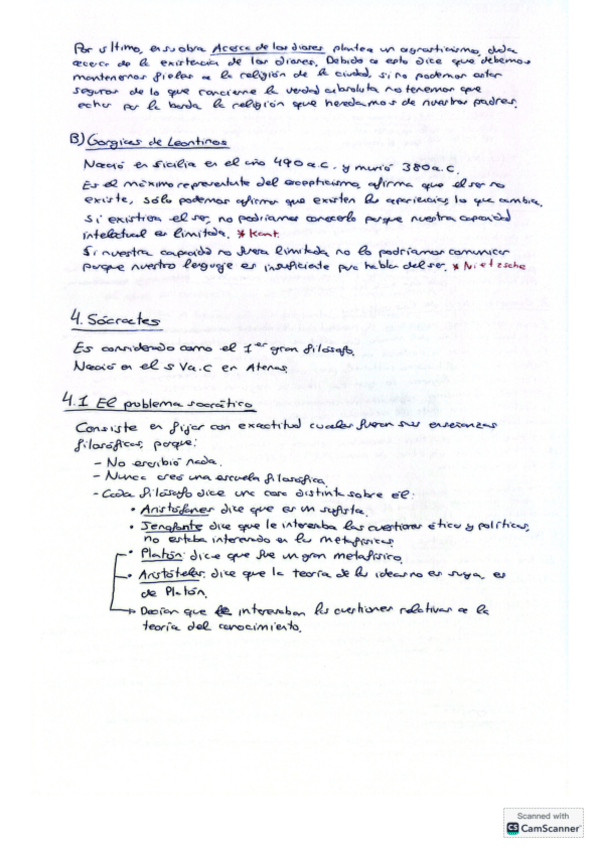 Por último, en su obra Acerca de los dioses plantea un agnosticismo, duda
acerca de la existencia de los dioses. Debido a esto dice que debemos
mantenernos fieles a la religión de la ciudad, si no podemos estar
seguros de lo que concierne la verdad absoluta no tenemos que
echar por la borda la religión que heredamos de nuestros padres.
B) Gorgias de Leontinos
Nació en Sicilia en el año 490 a.C. y murió 380 a.C.
Es el máximo representante del escepticismo, afirma que el ser no
existe, sólo podemos afirmar que existen las apariencias, lo que cambia.
Si existiera el ser, no podríamos conocerlo porque nuestra capacidad
intelectual es limitada. * Kant
Si nuestra capacidad no fuera limitada no lo podríamos comunicar
porque nuestro lenguaje es insuficiente para hablar del ser. * Nietzsche
4. Sócrates
Es considerado como el 1er gran filósofo.
Nació en el s V a.C en Atenas.
4.1 El problema socrático
Consiste en fijar con exactitud cuales fueron sus enseñanzas
filosóficas, porque:
- No escribió nada.
- Nunca creó una escuela filosófica.
- Cada filósofo dice una cosa distinta sobre él:
• Aristófanes dice que es un sofista.
• Jenofonte dice que le interesaba las cuestiones ético y políticas,
no estaba interesado en las metafísicas.
• Platón: dice que fue un gran metafísico.
• Aristóteles: dice que la teoría de las ideas no es suya, es
de Platón.
Decían que le interesaban las cuestiones relativas a la
teoría del conocimiento.
Scanned with
CS CamScanner